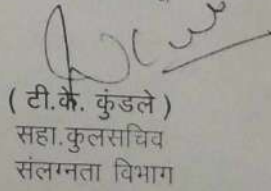 ( टी.के. कुंडले )
सहा.कुलसचिव
संलग्नता विभाग